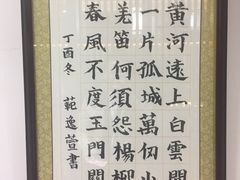 黄河遠上白雲間
一片孤城萬仞山
羌笛何須怨楊柳
春風不度玉門關
丁酉冬 範逸萱書